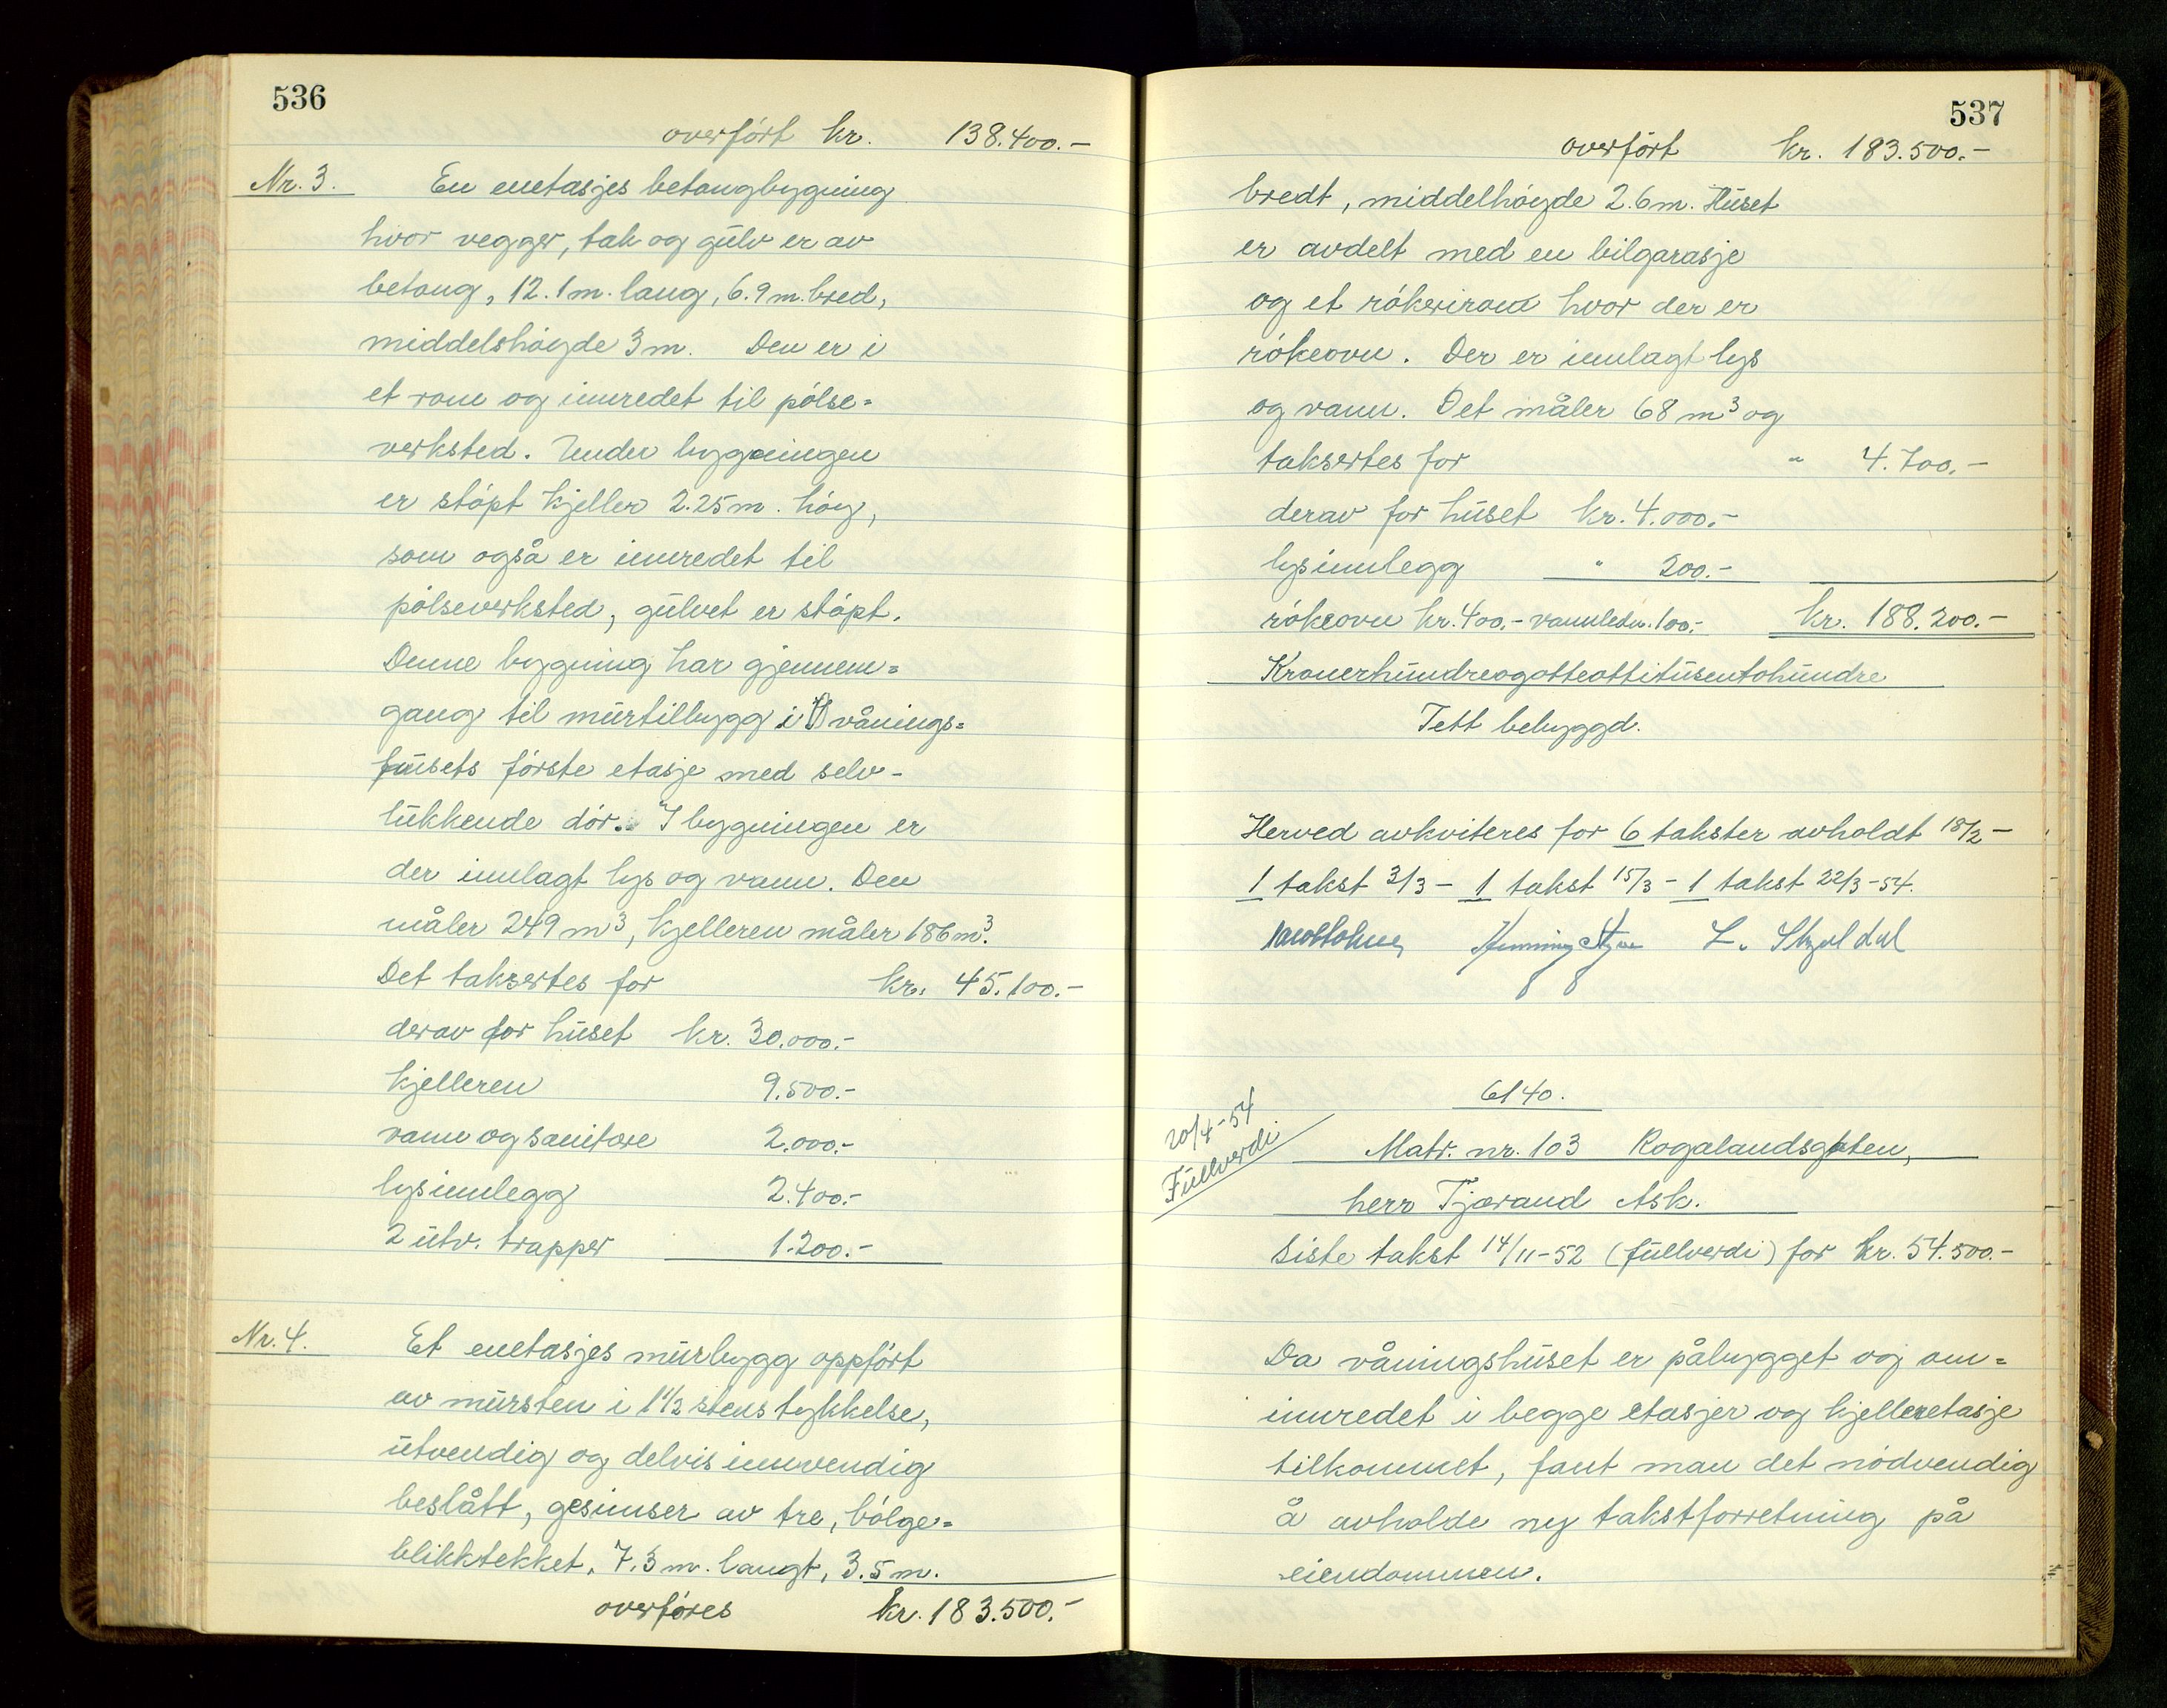 536
overført kr. 138.400.-
Nr. 3. En enetasjes betongbygning
hvor vegger, tak og gulv er av
betong, 12.1 m. lang, 6.9 m. bred,
middelshøyde 3 m. Den er i
et rom og innredet til pølse=
verksted. Under bygningen
er støpt kjeller 2.25 m. høy,
som også er innredet til
pølseverksted, gulvet er støpt.
Denne bygning har gjennem=
gang til murtilbygg i vånings=
husets første etasje med selv-
lukkende dør. I bygningen er
der innlagt lys og vann. Den
måler 249 m³, kjelleren måler 186 m³.
Det taksertes for kr. 45.100.-
derav for huset kr. 30.000.-
kjelleren 9.500.-
vann og sanitære 2.000.-
lysinnlegg 2.400.-
2 utv. trapper 1.200.-
Nr. 4. Et enetasjes murbygg oppført
av mursten i 1 1/2 stens tykkelse,
utvendig og delvis innvendig
beslått, gesimser av tre, bølge=
blikktekket. 7.3 m. langt, 3.5 m.
overføres kr. 183.500.-
537
overført kr. 183.500.-
bredt, middelhøyde 2.6 m. Huset
er avdelt med en bilgarasje
og et røkerirom hvor der er
røkeovn. Der er innlagt lys
og vann. Det måler 68 m³ og
taksertes for " 4.700.-
derav for huset kr. 4.000.-
lysinnlegg " 200.-
røkeovn kr. 400.- vannledn. 100.- kr. 188.200.-
Kronerhundreogåtteåttitusentohundre
Tett bebyggd.
Herved avkviteres for 6 takster avholdt 18/2 -
1 takst 3/3 - 1 takst 15/3 - 1 takst 22/3-54.
Henning L. Skjeldal
6140.
20/4-54
Fullverdi
Matr. nr. 103 Rogalandsgaten,
herr Tjærand Ask.
Siste takst 14/11-52 (fullverdi) for kr. 54.500.-
Da våningshuset er påbygget og om=
innredet i begge etasjer og kjelleretasje
tilkommet, fant man det nødvendig
å avholde ny takstforretning på
eiendommen.